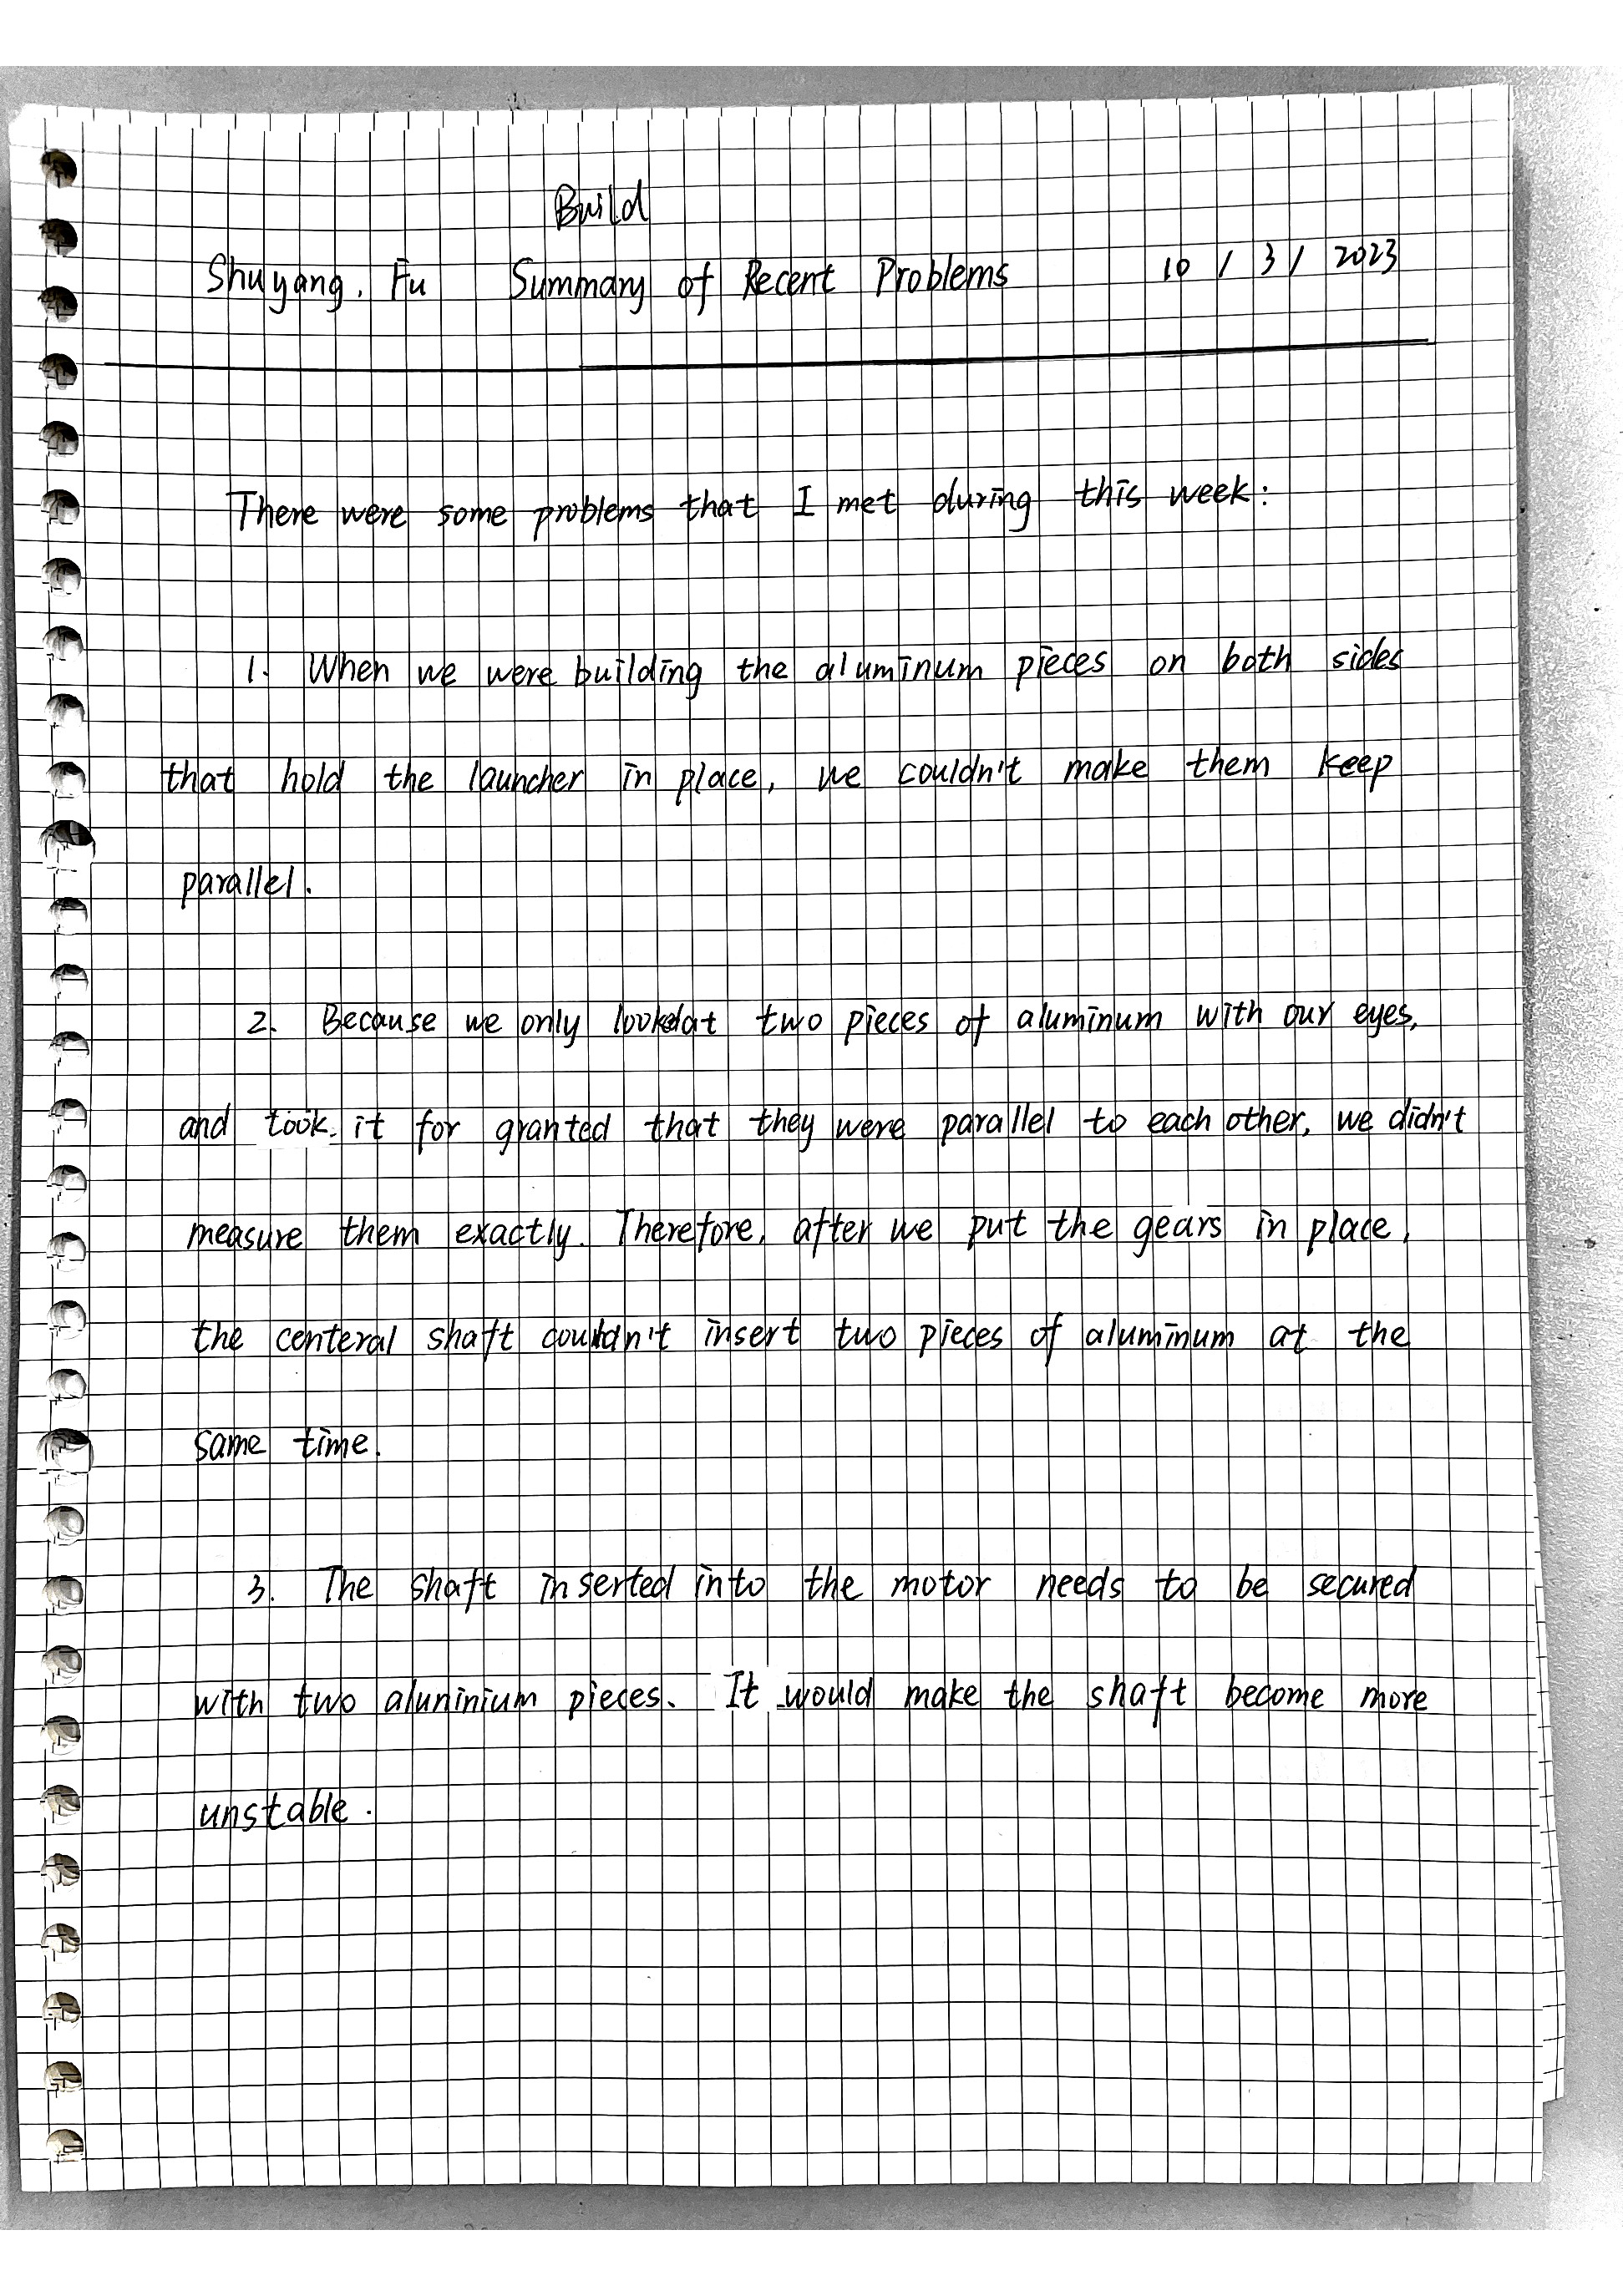 Build
Shuyang. Fu Summary of Recent Problems 10 / 3 / 2023
There were some problems that I met during this week:
1. When we were building the aluminum pieces on both sides
that hold the launcher in place, we couldn't make them keep
parallel.
2. Because we only looked at two pieces of aluminum with our eyes,
and took it for granted that they were parallel to each other, we didn't
measure them exactly. Therefore, after we put the gears in place,
the centeral shaft couldn't insert two pieces of aluminum at the
same time.
3. The shaft inserted into the motor needs to be secured
with two aluninium pieces. It would make the shaft become more
unstable.